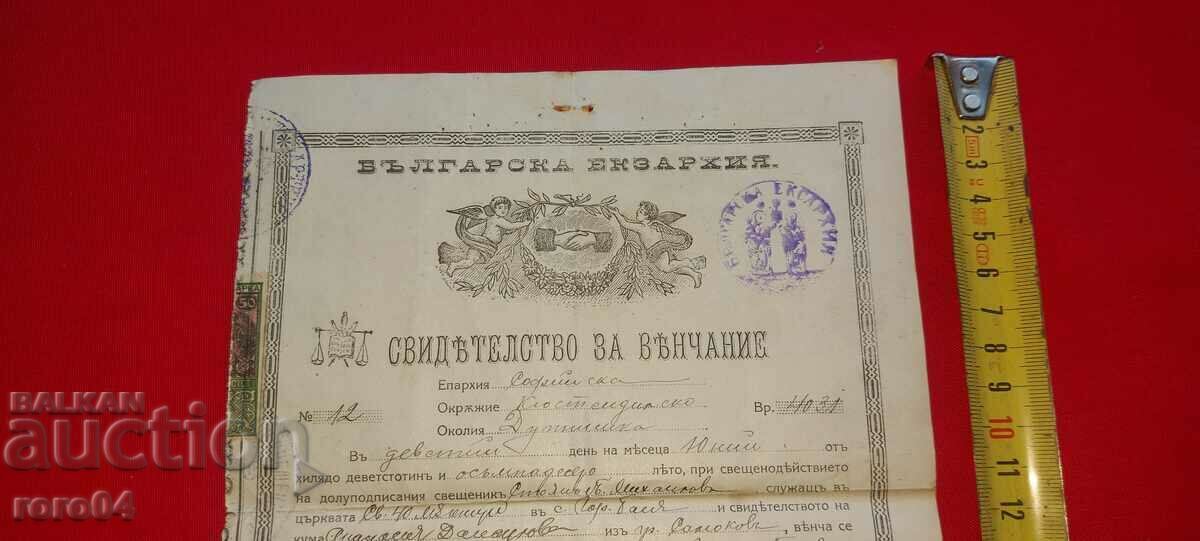 БЪЛГАРСКА ЕКЗАРХИЯ.
БЪЛГАРСКА ЕКСАРХИЯ
СВИДѢТЕЛСТВО ЗА ВѢНЧАНИЕ
Епархия Софийска
№ 12 Окрѫжие Кюстендилско Вр.
Околия Дупнишка
Въ деветий день на мѣсеца Юний отъ
хилядо деветстотинъ и осьмнадесето лѣто, при свещенодѣйствието
на долуподписания свещеникъ Стоянъ Михаиловъ, служащъ въ
църквата Св. 40 Мѫченици въ с. Гор. Баня и свидетелството на
кума изъ гр. Самоковъ, вѣнча се
BALKAN
auction
roro04
50
2 3 4 5 6 7 8 9 10 11 12